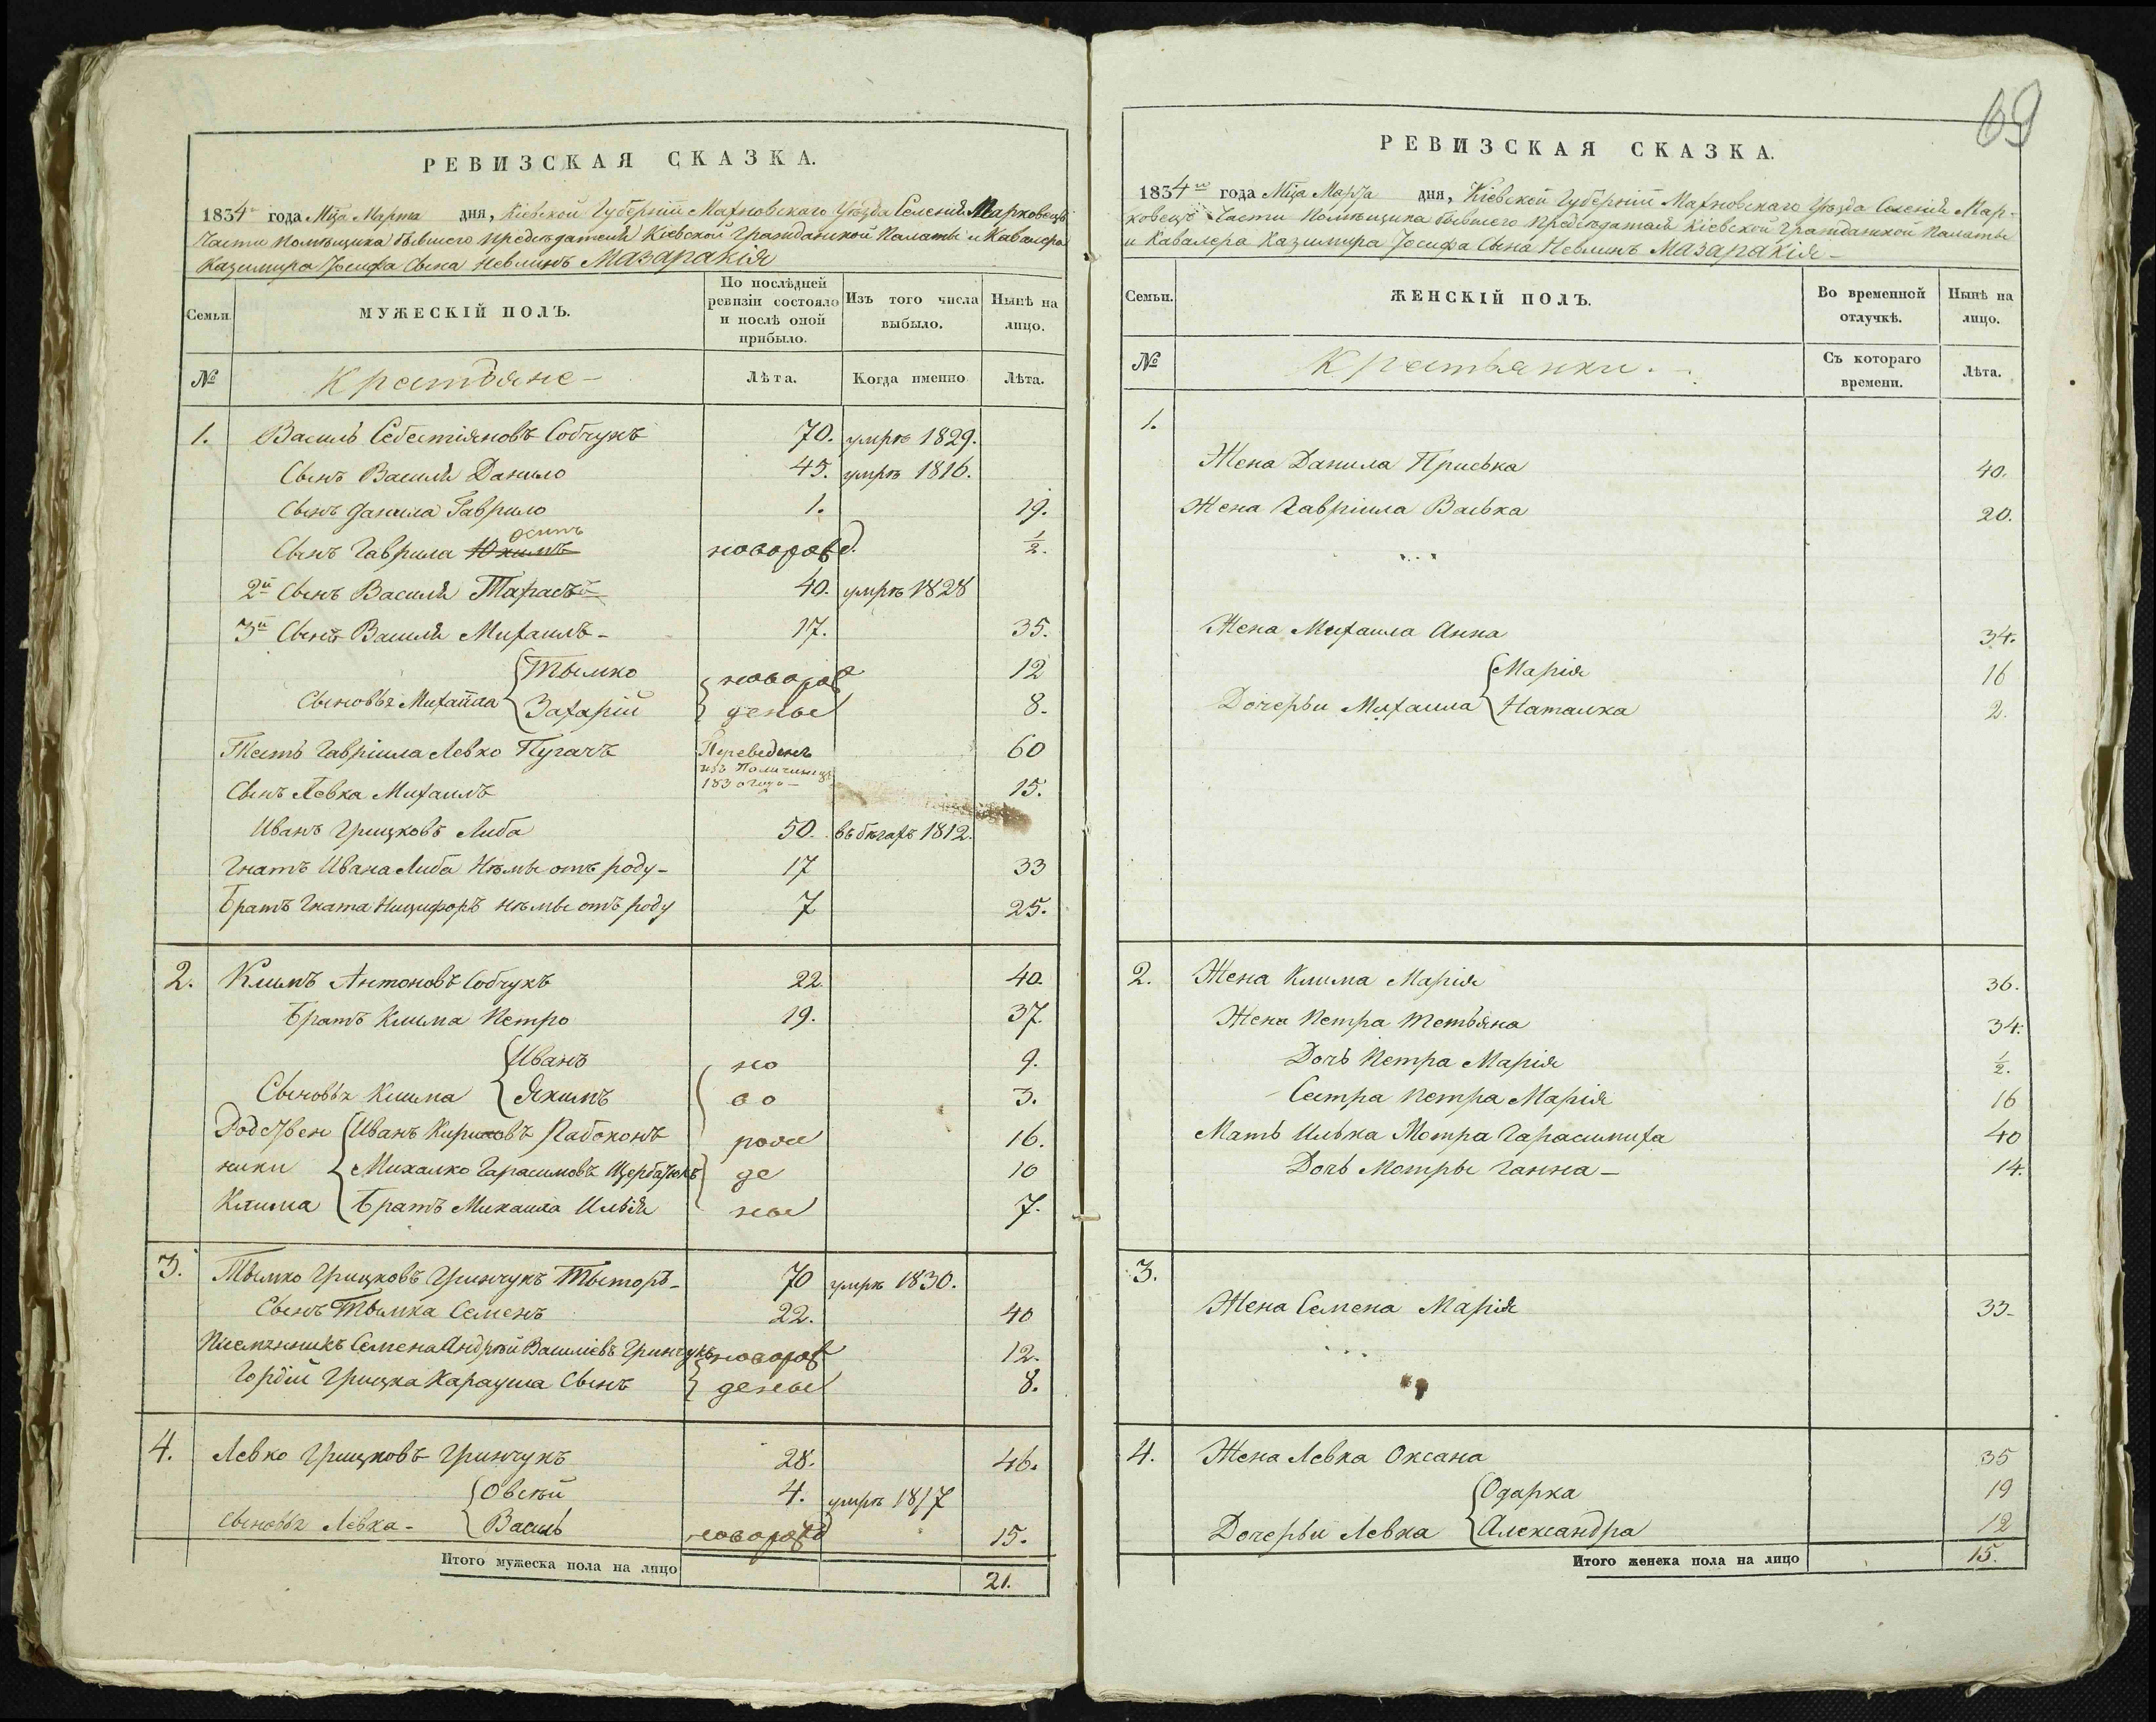 РЕВИЗСКАЯ СКАЗКА.
1834 года Мца Марта дня, Кіевской Губерніи Махновскаго Уѣзда Селенія Марковецъ
Части помѣщика бывшего предсѣдателя Кіевской Гражданской Палаты и Кавалера
Казимира Іосифа Сына Невлинъ Мазаракія
Семьи.
МУЖЕСКІЙ ПОЛЪ.
По послѣдней ревизіи состояло и послѣ оной прибыло.
Изъ того числа выбыло.
Нынѣ на лицо.
№ Крестьяне Лѣта. Когда именно Лѣта.
1. Василь Себестіяновъ Собчукъ 70. умръ 1829.
Сынъ Василя Данило 45. умръ 1816.
Сынъ Данила Гаврило 1. 19.
Осипъ
Сынъ Гаврила Юхимъ новорожд. ½.
2й Сынъ Василя Тарасъ 40. умръ 1828
3й Сынъ Василя Михаилъ - 17. 35.
Тымко 12
Сыновья Михайла новорож
Захарій деные 8.
Тесть Гавріила Левко Пугачъ Переведенъ 60
изъ
1830 года
Сынъ Левка Михаилъ 15.
Иванъ Грицковъ Либа 50. въ бѣгахъ 1812.
Гнатъ Ивана Либа Нѣмы отъ роду - 17 33
Братъ Гната Ницифоръ нѣмы отъ роду 7 25.
2. Климъ Антоновъ Собчукъ 22. 40.
Братъ Клима Петро 19. 37.
Иванъ но 9.
Сыновья Клима Якимъ во 3.
Родствен Иванъ Кириловъ Рабоконъ рож 16.
ники Михалко Гарасимовъ Щербатюкъ де 10
Клима Братъ Михаила Илья ные 7.
3. Тымко Грицковъ Гринчукъ 70 умръ 1830.
Сынъ Тымка Семенъ 22. 40
Племянникъ Семена Андрѣй Василіевъ Гринчукъ новорож 12.
Гордій Грицка Караула Сынъ денные 8.
4. Левко Грицковъ Гринчукъ 28. 46.
Овсѣй 4. умръ 1817
Сыновья Левка - Василь новорожд 15.
Итого мужеска пола на лицо 21.
69
РЕВИЗСКАЯ СКАЗКА.
1834го года Мца Марта дня, Кіевской Губерніи Махновскаго Уѣзда Селенія Мар-
ковецъ Части Помѣщика бывшего Предсѣдателя Кіевской Гражданской Палаты
и Кавалера Казимира Іосифа Сына Невлинъ Мазаракія -
Семьи.
ЖЕНСКІЙ ПОЛЪ.
Во временной отлучкѣ.
Нынѣ на лицо.
№ Крестьянки. Съ котораго времени. Лѣта.
1.
Жена Данила Приська 40.
Жена Гавріила Васька 20.
Жена Михаила Анна 34.
Марія 16
Дочерьи Михаила
Наталка 2.
2. Жена Клима Марія 36.
Жена Петра Тетьяна 34.
Дочь Петра Марія ½.
Сестра Петра Марія 16
Мать Илька Мотра Гарасимиха 40
Дочь Мотры Ганна - 14.
3.
Жена Семена Марія 33.
4. Жена Левка Оксана 35
Одарка 19
Дочерьи Левка Александра 12
Итого женска пола на лицо 15.